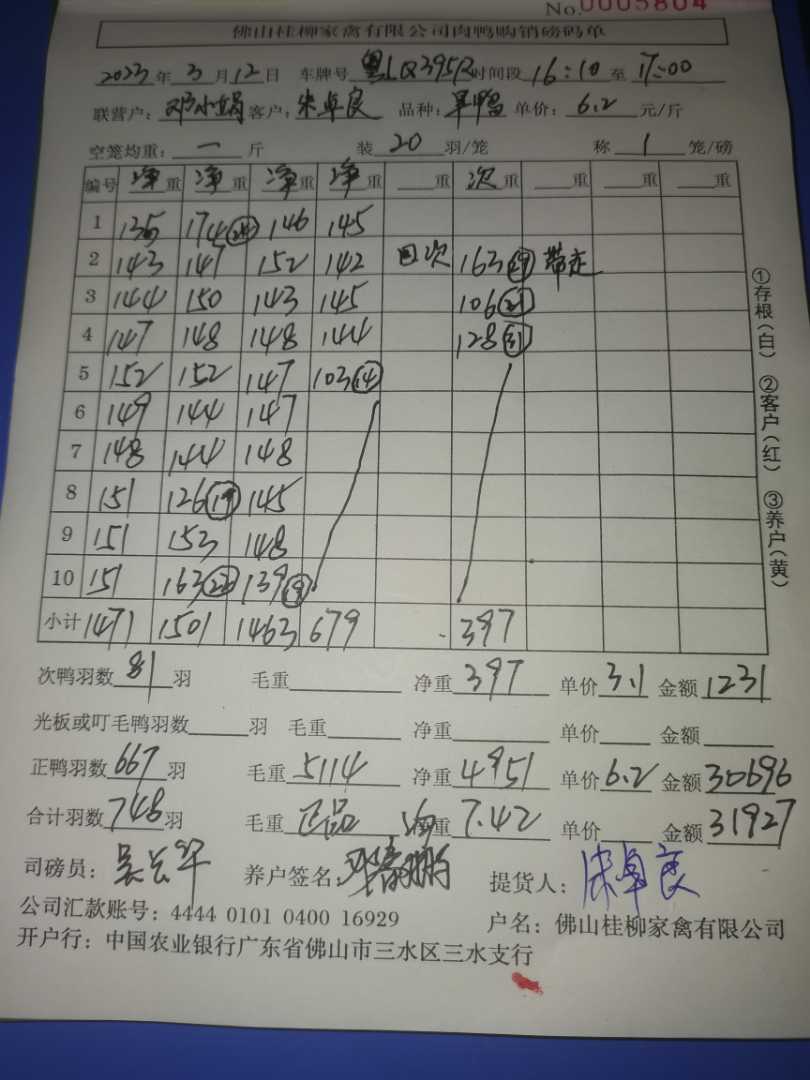 No.0005804
佛山桂柳家禽有限公司肉鸭购销磅码单
2023年3月12日 车牌号 粤LQ395R 时间段 16:10 至 17:00
联营户: 邓小娟 客户: 朱卓良 品种: 旱鸭 单价: 6.2 元/斤
空笼均重: 一 斤 装 20 羽/笼 称 1 笼/磅
编号 净重 净重 净重 净重 重 次重 重 重 重
1 135 174(24) 146 145
2 143 147 152 142 回次 163(29) 带走
3 144 150 143 145 106(21)
4 147 148 148 144 128(31)
5 152 152 147 103(14)
6 149 144 147
7 148 144 148
8 151 126(17) 145
9 151 153 148
10 151 163(22) 139(19)
小计 1471 1501 1463 679 397
次鸭羽数 81 羽 毛重 净重 397 单价 3.1 金额 1231
光板或叮毛鸭羽数 羽 毛重 净重 单价 金额
正鸭羽数 667 羽 毛重 5114 净重 4951 单价 6.2 金额 30696
合计羽数 748 羽 毛重 正品 均重 7.42 单价 金额 31927
司磅员: 养户签名: 提货人: 朱卓良
公司汇款账号: 4444 0101 0400 16929 户名: 佛山桂柳家禽有限公司
开户行: 中国农业银行广东省佛山市三水区三水支行
①存根(白) ②客户(红) ③养户(黄)